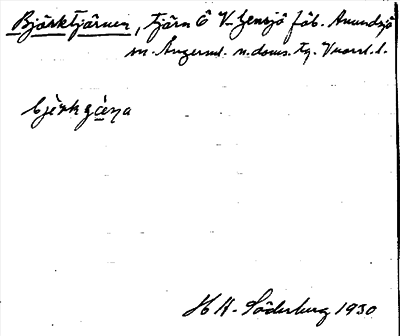 Björktjärnen, tjärn Ö V. Gensjö fäb. Anundsjö
sn. Ångerml. n. doms. tg. Vnorrl. l.
Söderberg 1930